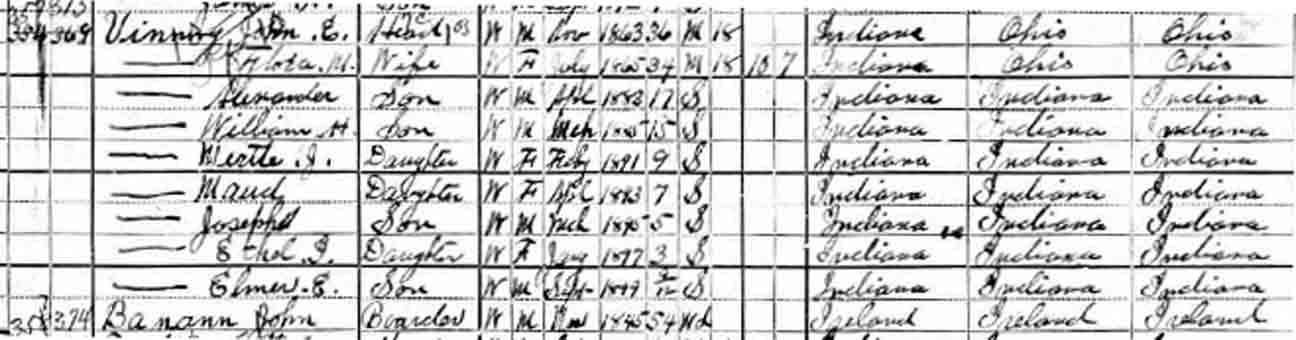 369 John E. Head W M Nov 1863 36 M 18 Indiana Ohio Ohio
M. Wife W F July 1865 34 M 18 10 7 Indiana Ohio Ohio
Alexander Son W M Apl 1883 17 S Indiana Indiana Indiana
William H. Son W M Mch 1885 15 S Indiana Indiana Indiana
Mirtle J. Daughter W F Feby 1891 9 S Indiana Indiana Indiana
Maud Daughter W F Apl 1893 7 S Indiana Indiana Indiana
Joseph Son W M Mch 1895 5 S Indiana Indiana Indiana
Ethel I. Daughter W F Jany 1897 3 S Indiana Indiana Indiana
Elmer E. Son W M Sept 1899 S Indiana Indiana Indiana
374 John Boarder W M Nov 1845 54 Wd Ireland Ireland Ireland